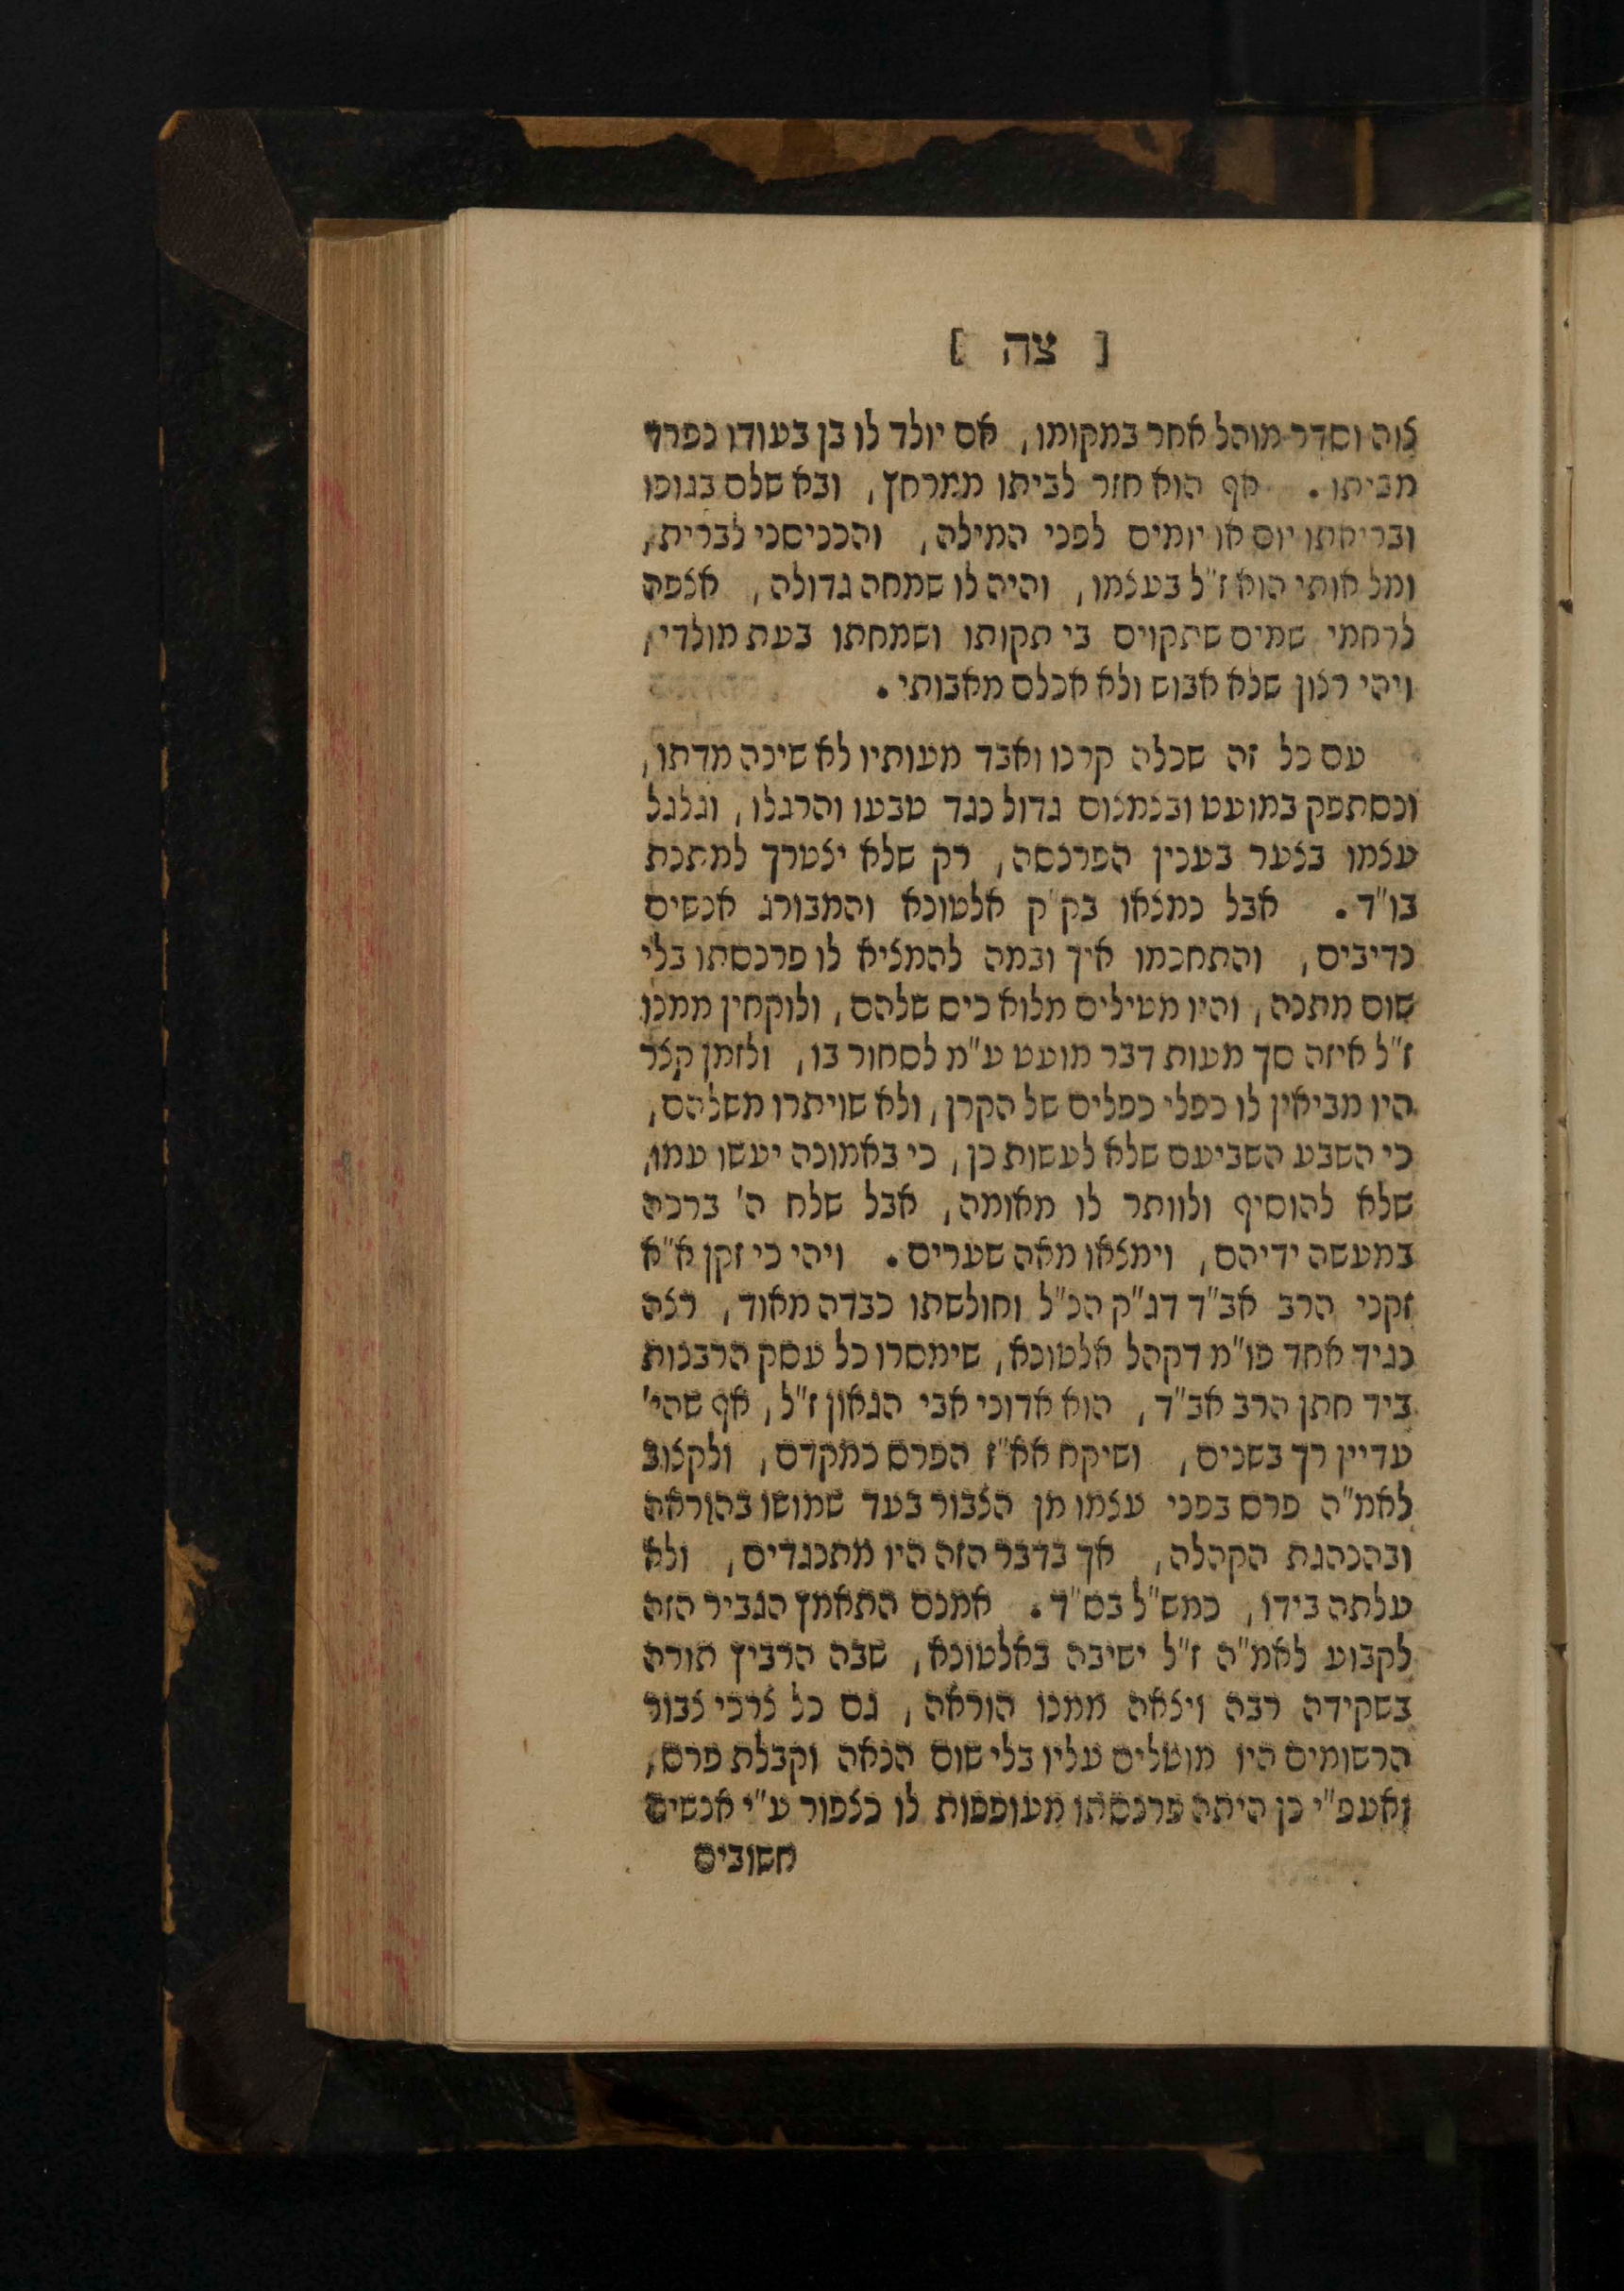 [ צה ]
צוה וסדר מוהל אחר במקומו, אם יולד לו בן בעודו נפרד
מביתו. אף הוא חזר לביתו ממרחץ, ובא שלם בגופו
ובריאתו יום או יומים לפני המילה, והכניסני לברית,
ומל אותי הוא ז"ל בעצמו, והיה לו שמחה גדולה, אצפה
לרחמי שמים שתקוים בי תקותו ושמחתו בעת מולדי,
ויהי רצון שלא אבוש ולא אכלם מאבותי.
עם כל זה שכלה קרנו ואבד מעותיו לא שינה מדתו,
ונסתפק במועט ובצמצום גדול נגד טבעו והרגלו, וגלגל
עצמו בצער בענין הפרנסה, רק שלא יצטרך למתנת
בו"ד. אבל נמצאו בק"ק אלטונא והמבורג אנשים
נדיבים, והתחכמו איך ובמה להמציא לו פרנסתו בלי
שום מתנה, והיו מטילים מלוא כיס שלהם, ולוקחין ממנו
ז"ל איזה סך מעות דבר מועט ע"מ לסחור בו, ולזמן קצר
היו מביאין לו כפלי כפלים של הקרן, ולא שויתרו משלהם,
כי השבע השביעם שלא לעשות כן, כי באמונה יעשו עמו,
שלא להוסיף ולוותר לו מאומה, אבל שלח ה' ברכה
במעשה ידיהם, וימצאו מאה שערים. ויהי כי זקן א"א
זקני הרב אב"ד דג"ק הנ"ל וחולשתו כבדה מאוד, רצה
נגיד אחד פו"מ דקהל אלטונא, שימסרו כל עסק הרבנות
ביד חתן הרב אב"ד, הוא אדוני אבי הגאון ז"ל, אף שהי'
עדיין רך בשנים, ושיקח אא"ז הפרס כמקדם, ולקצוב
לאמ"ה פרס בפני עצמו מן הצבור בעד שמושו בהוראה
ובהנהגת הקהלה, אך בדבר הזה היו מתנגדים, ולא
עלתה בידו, כמש"ל בס"ד. אמנם התאמץ הגביר הזה
לקבוע לאמ"ה ז"ל ישיבה באלטונא, שבה הרביץ תורה
בשקידה רבה ויצאה ממנו הוראה, גם כל צרכי צבור
הרשומים היו מוטלים עליו בלי שום הנאה וקבלת פרס,
ואעפ"י כן היתה פרנסתו מעופפות לו כצפור ע"י אנשים
חשובים